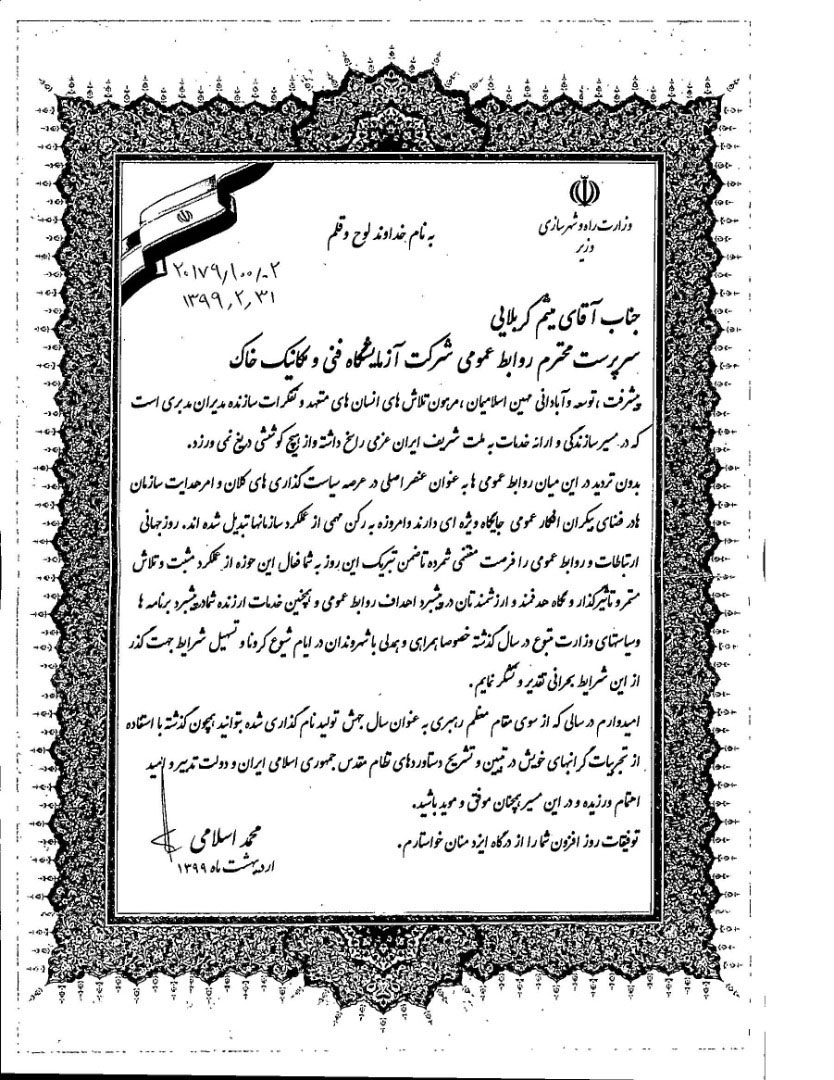 وزارت راه و شهرسازی
وزیر
به نام خداوند لوح و قلم
۲۰۱۷۹/۱۰۰/۰۲
۱۳۹۹/۲/۳۱
جناب آقای میثم کربلایی
سرپرست محترم روابط عمومی شرکت آزمایشگاه فنی و مکانیک خاک
پیشرفت ، توسعه و آبادانی میهن اسلامیان ، مرهون تلاش های انسان های متعهد و تفکرات سازنده مدیران مدبری است
که در مسیر سازندگی و ارائه خدمات به ملت شریف ایران عزمی راسخ داشته و از هیچ کوششی دریغ نمی ورزد.
بدون تردید در این میان روابط عمومی ها به عنوان عنصر اصلی در عرصه سیاست گذاری های کلان و امر هدایت سازمان
ها در فضای بیکران افکار عمومی جایگاه ویژه ای دارند و امروزه به رکن مهمی از عملکرد سازمانها تبدیل شده اند. روز جهانی
ارتباطات و روابط عمومی را فرصت مغتنمی شمرده تا ضمن تبریک این روز به شما فعال این حوزه از عملکرد مثبت و تلاش
مستمر و تأثیرگذار و نگاه هدفمند و ارزشمندتان در پیشبرد اهداف روابط عمومی و همچنین خدمات ارزنده شما در پیشبرد برنامه ها
و سیاستهای وزارت متبوع در سال گذشته خصوصا همراهی و همدلی با شهروندان در ایام شیوع کرونا و تسهیل شرایط جهت گذر
از این شرایط بحرانی تقدیر و تشکر نمایم .
امیدوارم در سالی که از سوی مقام معظم رهبری به عنوان سال جهش تولید نام گذاری شده بتوانید همچون گذشته با استفاده
از تجربیات گرانبهای خویش در تبیین و تشریح دستاوردهای نظام مقدس جمهوری اسلامی ایران و دولت تدبیر و امید
اهتمام ورزیده و در این مسیر همچنان موفق و موید باشید.
توفیقات روز افزون شما را از درگاه ایزد منان خواستارم .
محمد اسلامی
اردیبهشت ماه ۱۳۹۹